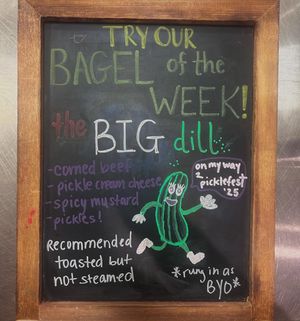 TRY OUR
BAGEL of the
WEEK!
the BIG dill
- corned beef
- pickle cream cheese
- spicy mustard
- pickles!
on my way
2
picklefest
'25
Recommended
toasted but
not steamed
*rung in as
BYO*